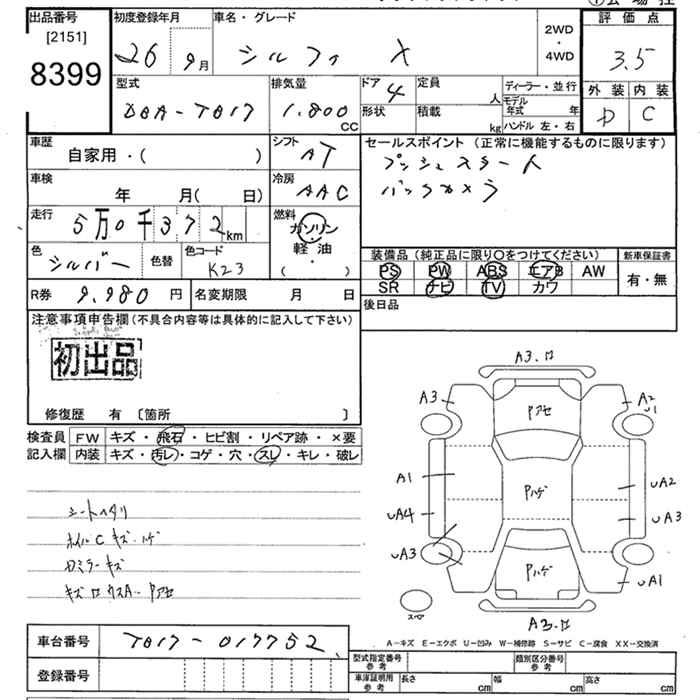 出品番号
[2151]
8399
初度登録年月
26 9月
車名・グレード
シルフィ X
2WD
・
4WD
評価点
3.5
外装 内装
D C
型式
DBA-TB17
排気量
1.800
CC
ドア
4
形状
定員
人
積載
kg
ディーラー・並行
モデル
年式 年
ハンドル 左・右
車歴
自家用・( )
シフト
AT
セールスポイント (正常に機能するものに限ります)
プッシュスタート
バックカメラ
車検
年 月( 日)
冷房
AAC
走行
5万0千372km
燃料
ガソリン
・
軽・油
( )
色
シルバー
色替
色コード
K23
装備品 (純正品に限り○をつけてください)
PS PW ABS エアB AW
SR ナビ TV カワ
新車保証書
有・無
R券 9.980 円
名変期限 月 日
後日品
注意事項申告欄(不具合内容等は具体的に記入して下さい)
初出品
修復歴 有 〔箇所 〕
検査員
記入欄
FW キズ・飛石・ヒビ割・リペア跡・×要
内装 キズ・汚レ・コゲ・穴・スレ・キレ・破レ
シートヘタリ
ホイルCキズ・ハゲ
Dミラーキズ
キズロクスA-Pアセ
A3.ロ
A3
A2
U1
Pアセ
A1
Pハゲ
UA2
UA4
UA3
UA3
Pハゲ
UA1
スペア
A3.ロ
A-キズ E-エクボ U-凹み W-補修跡 S-サビ C-腐食 XX-交換済
車台番号 TB17-017752
登録番号
型式指定番号
参考
類別区分番号
参考
車庫証明用
参考
長さ cm
幅 cm
高さ cm